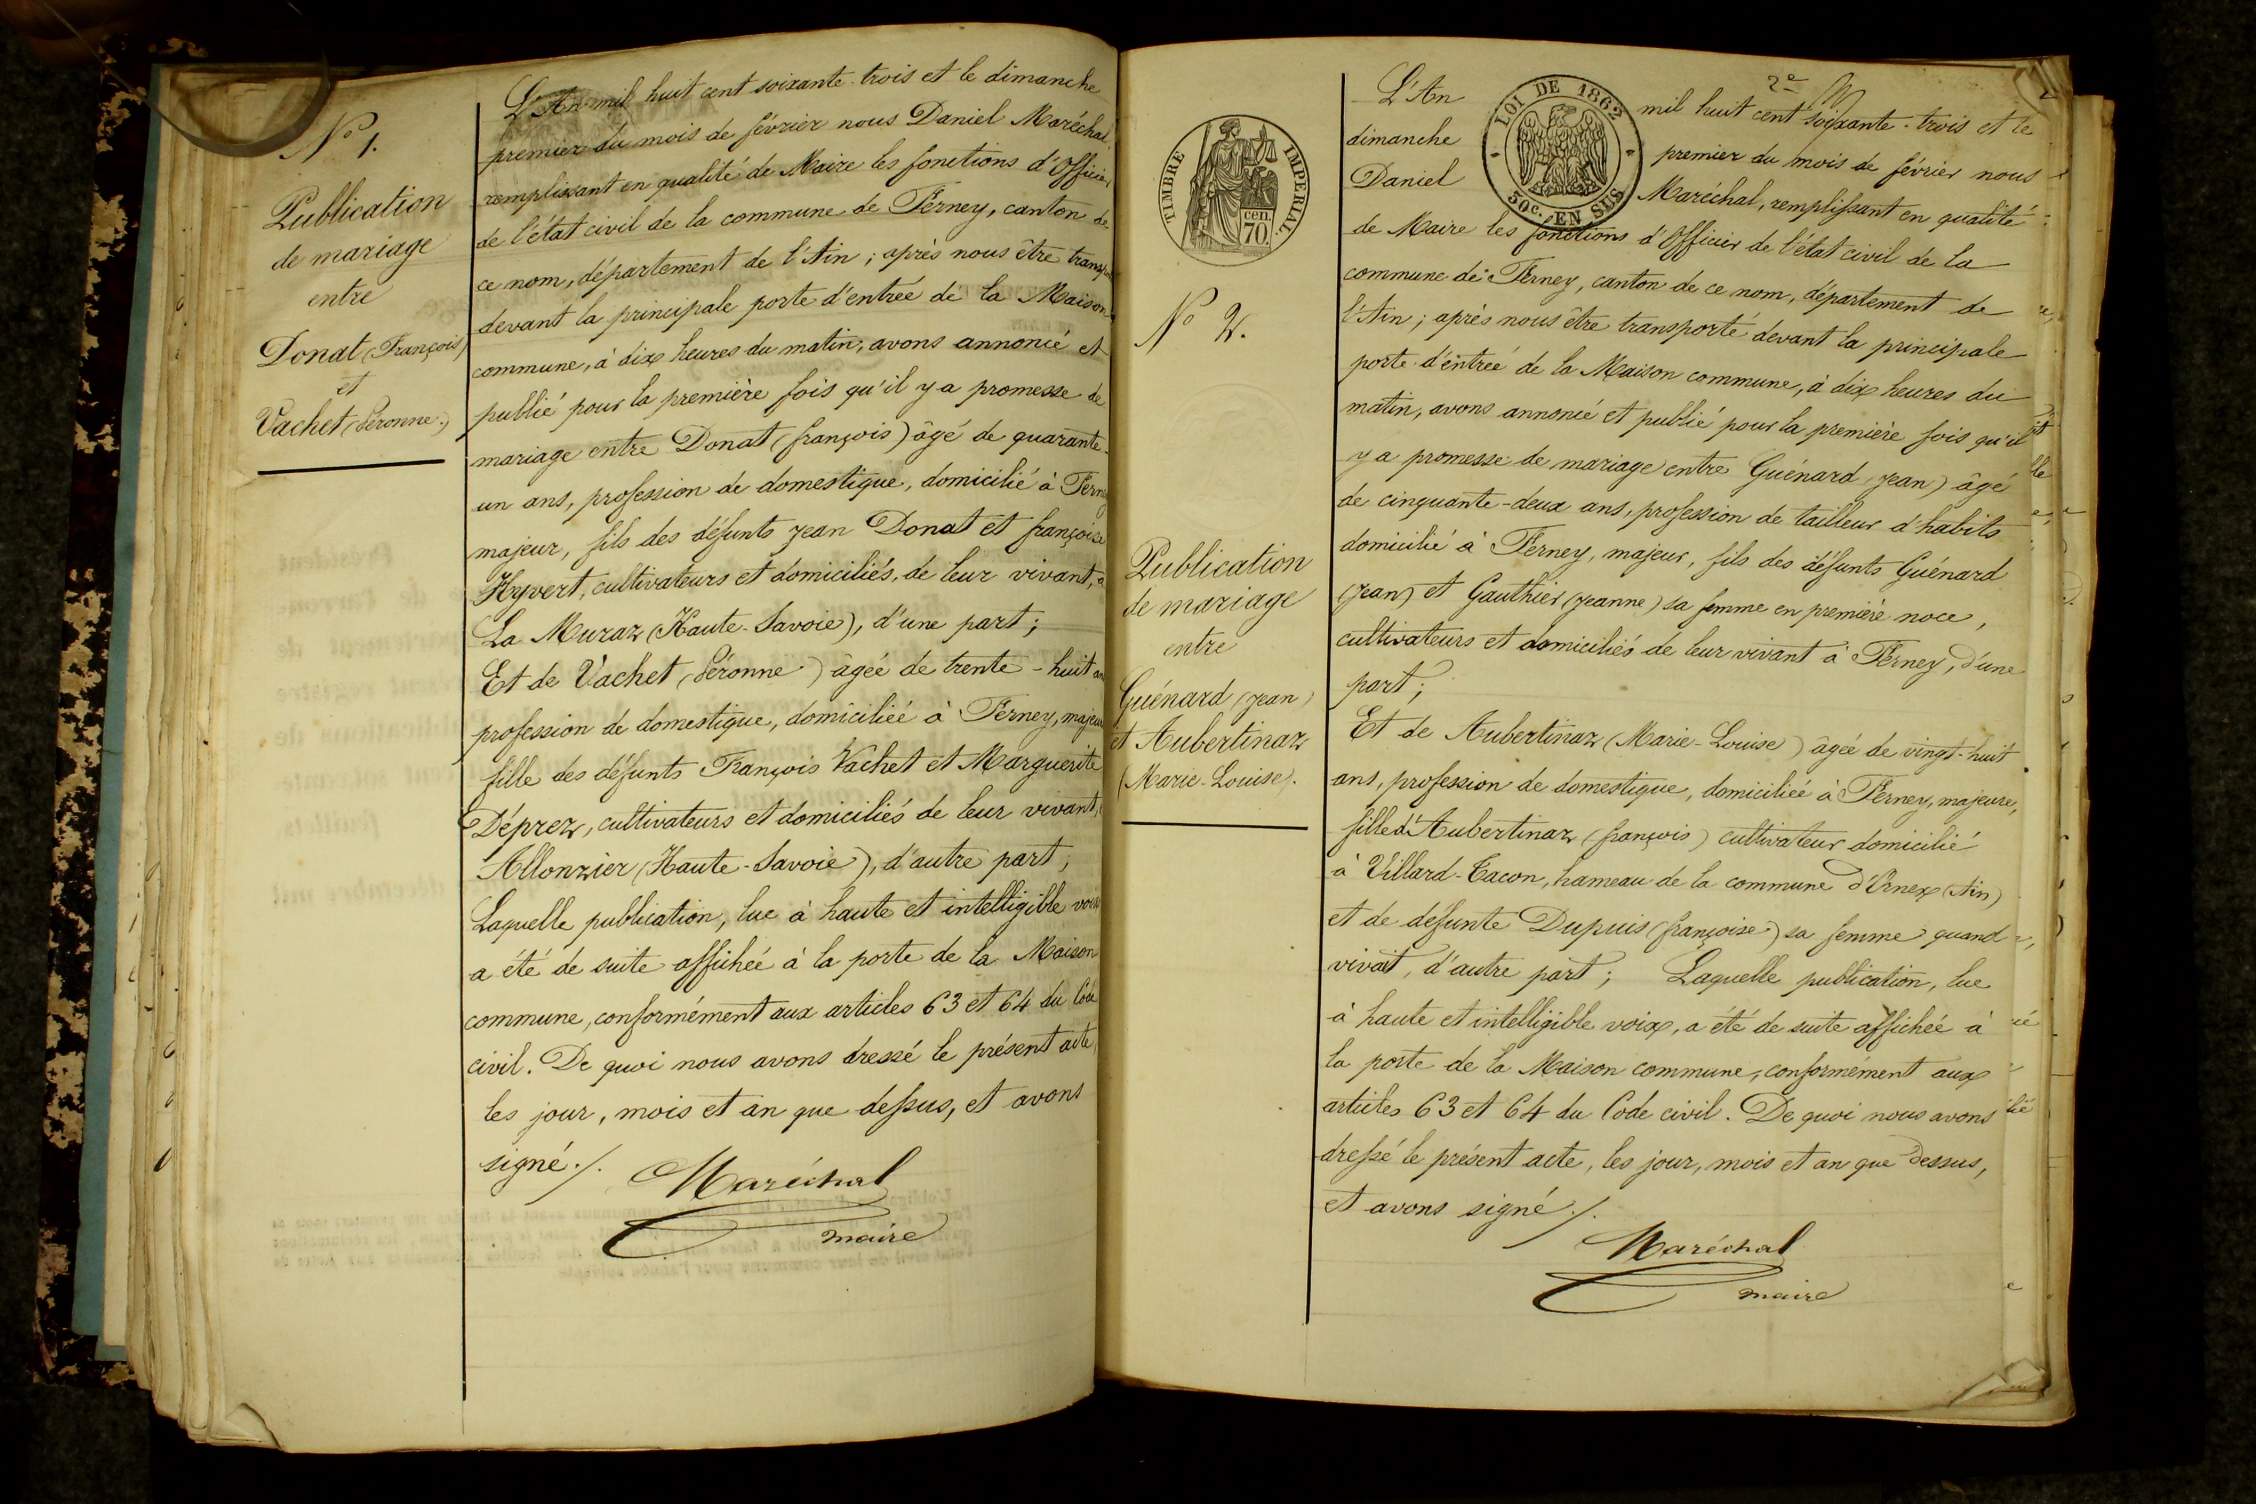 N° 1.
Publication
de mariage
entre
Donat (François)
et
Vachet (Péronne.)
L'An mil huit cent soixante-trois et le dimanche
premier du mois de février nous Daniel Maréchal,
remplissant en qualité de Maire les fonctions d'Officier
de l'état civil de la commune de Ferney, canton de
ce nom, département de l'Ain ; après nous être
devant la principale porte d'entrée de la Maison
commune, à dix heures du matin, avons annoncé et
publié pour la première fois qu'il y a promesse de
mariage entre Donat (françois) âgé de quarante-
un ans, profession de domestique, domicilié à Ferney
majeur, fils des défunts Jean Donat et françoise
Hyvert, cultivateurs et domiciliés, de leur vivant, à
La Muraz (Haute-Savoie), d'une part ;
Et de Vachet (Péronne) âgée de trente-huit ans
profession de domestique, domiciliée à Ferney, majeure
fille des défunts François Vachet et Marguerite
Déprez, cultivateurs et domiciliés de leur vivant,
Allonzier (Haute-Savoie), d'autre part ;
Laquelle publication, lue à haute et intelligible voix
a été de suite affichée à la porte de la Maison
commune, conformément aux articles 63 et 64 du Code
civil. De quoi nous avons dressé le présent acte,
les jour, mois et an que dessus, et avons
signé ./.
Maréchal
maire
2e
TIMBRE IMPERIAL
cen. 70.
LOI DE 1862
50c. EN SUS
N° 2.
Publication
de mariage
entre
Guénard (Jean)
et Aubertinaz
(Marie-Louise).
L'An mil huit cent soixante-trois et le
dimanche premier du mois de février nous
Daniel Maréchal, remplissant en qualité
de Maire les fonctions d'Officier de l'état civil de la
commune de Ferney, canton de ce nom, département de
l'Ain ; après nous être transporté devant la principale
porte d'entrée de la Maison commune, à dix heures du
matin, avons annoncé et publié pour la première fois qu'il
y a promesse de mariage entre Guénard (Jean) âgé
de cinquante-deux ans, profession de tailleur d'habits
domicilié à Ferney, majeur, fils des défunts Guénard
(Jean) et Gauthier (Jeanne) sa femme en première noce,
cultivateurs et domiciliés de leur vivant à Ferney, d'une
part ;
Et de Aubertinaz (Marie-Louise) âgée de vingt-huit
ans, profession de domestique, domiciliée à Ferney, majeure,
fille d'Aubertinaz (françois) cultivateur domicilié
à Villard-Tacon, hameau de la commune d'Ornex (Ain)
et de défunte Dupuis (françoise) sa femme quand
vivait, d'autre part ; Laquelle publication, lue
à haute et intelligible voix, a été de suite affichée à
la porte de la Maison commune, conformément aux
articles 63 et 64 du Code civil. De quoi nous avons
dressé le présent acte, les jour, mois et an que dessus,
et avons signé ./.
Maréchal
maire